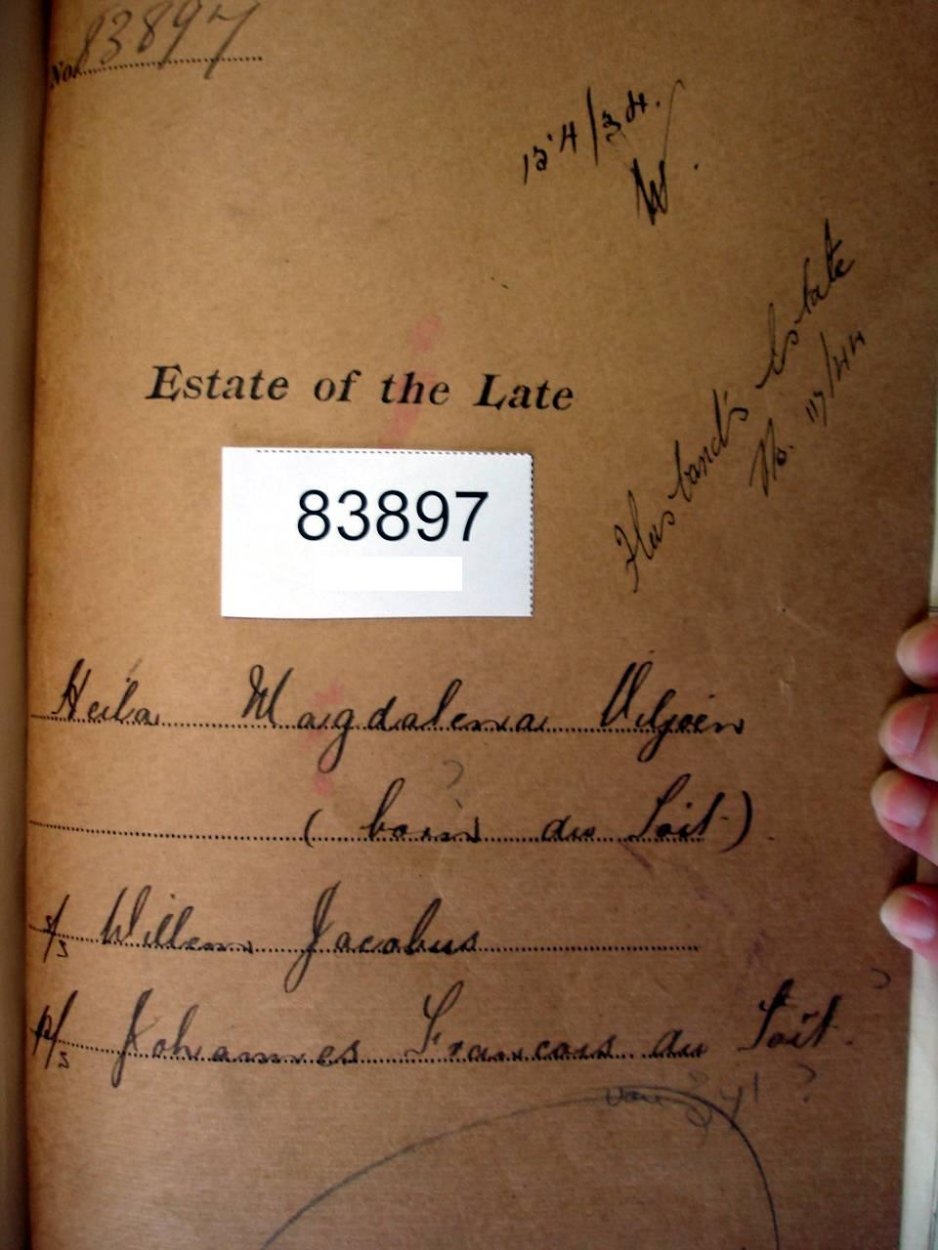 No. 83897
12.4/34.
Husband's Estate
No. 117/44
Estate of the Late
83897
Heila Magdalena Viljoen
( born du Toit )
?
s/s Willem Jacobus
p/s Johannes Francois du Toit.
van Zyl ?